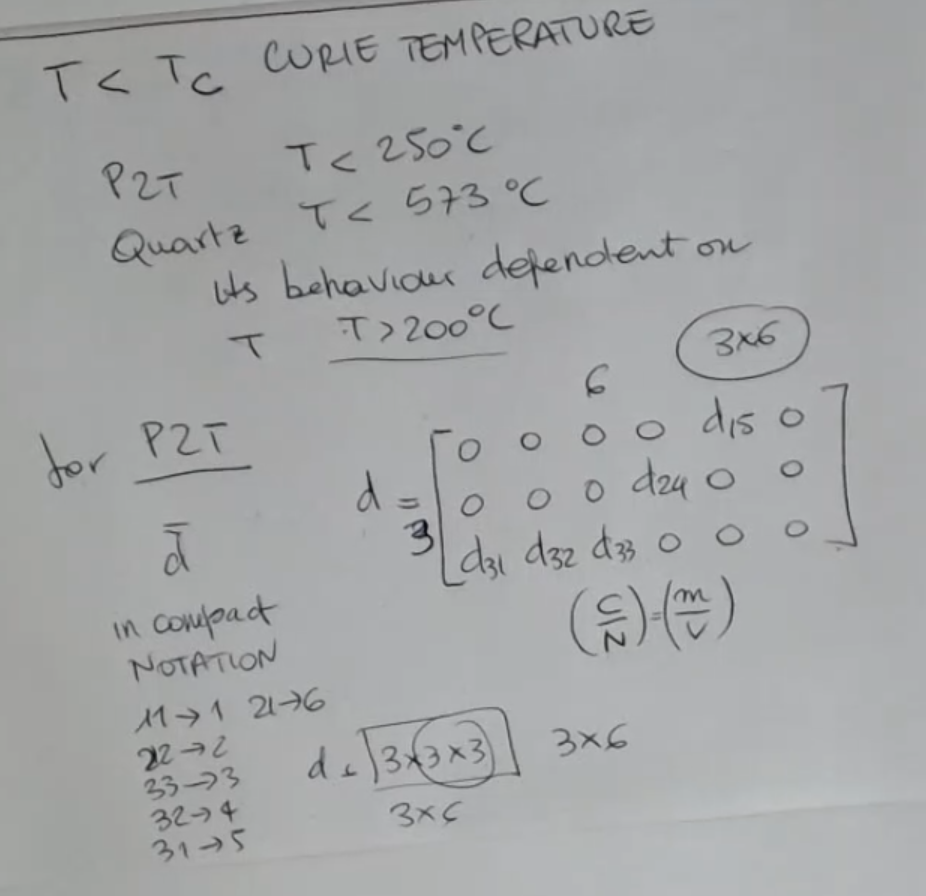 T < Tc CURIE TEMPERATURE
PZT T < 250°C
Quartz T < 573 °C
its behaviour dependent on
T T > 200°C
3x6
for PZT
6
d = 3 [ 0 0 0 0 d15 0
0 0 0 d24 0 0
d31 d32 d33 0 0 0 ]
d̄
(C/N) = (m/V)
in compact
NOTATION
11→1 21→6
22→2
33→3
32→4
31→5
d = 3x3x3 3x6
3x6